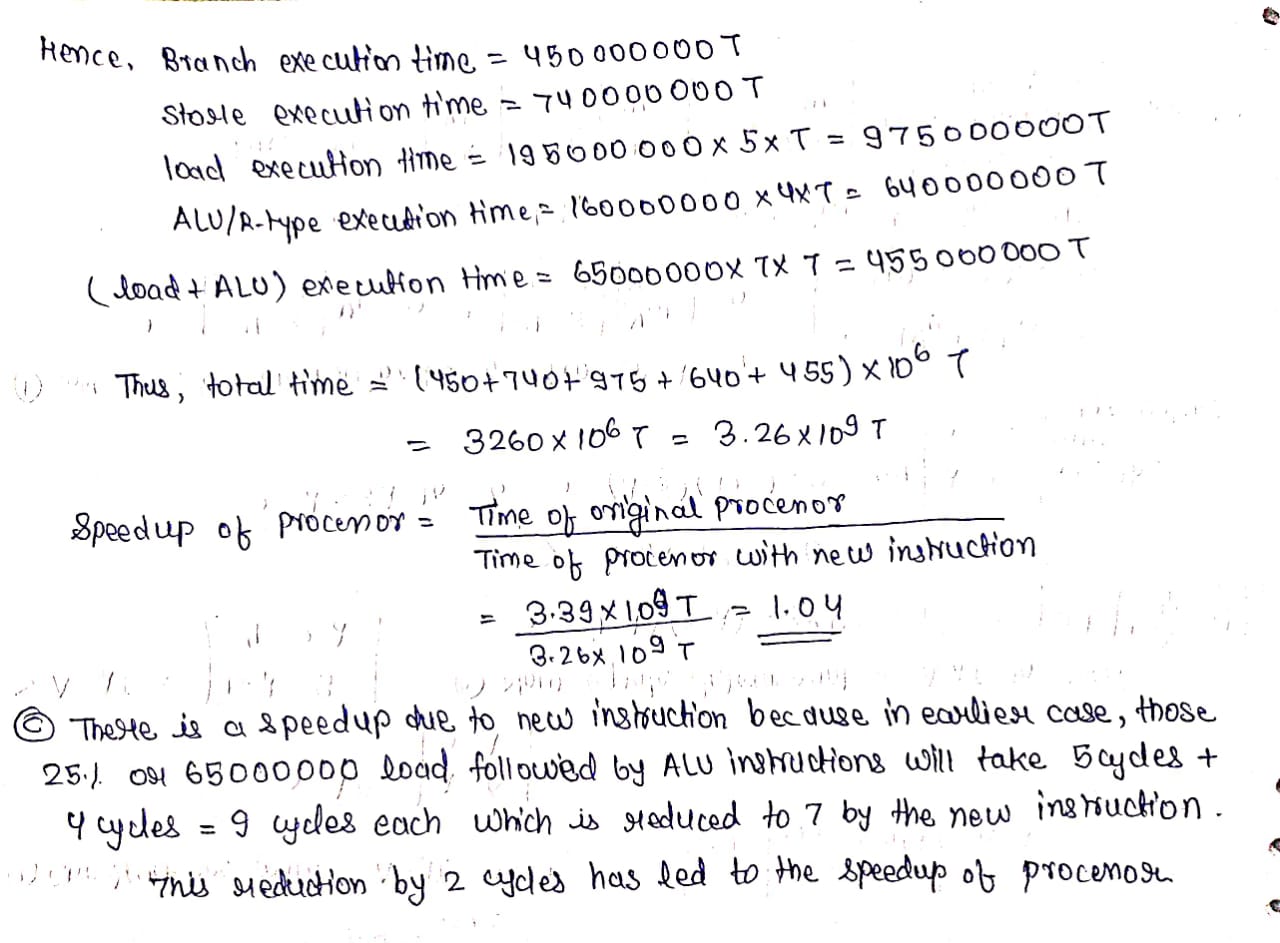 Hence, Branch execution time = 450 000000 T
Store execution time = 740000000 T
load execution time = 195000000 x 5 x T = 975000000T
ALU/R-type execution time = 160000000 x 4 x T = 640000000 T
(load + ALU) execution time = 65000000 x 7 x T = 455000000 T
(i) Thus, total time = (450 + 740 + 975 + 640 + 455) x 10⁶ T
= 3260 x 10⁶ T = 3.26 x 10⁹ T
Speedup of processor = Time of original processor
Time of processor with new instruction
= 3.39 x 10⁹ T = 1.04
3.26 x 10⁹ T
ⓒ There is a speedup due to new instruction because in earlier case, those
25% or 65000000 load followed by ALU instructions will take 5 cycles +
4 cycles = 9 cycles each which is reduced to 7 by the new instruction.
This reduction by 2 cycles has led to the speedup of processor